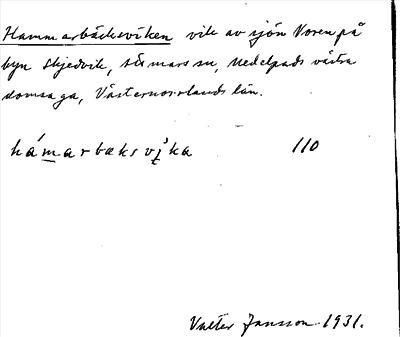 Hammarbäcksviken vik av sjön Noren på
byn Skjedvik, Stmars sn, Medelpads västra
domsaga, Västernorrlands län.
há́marbæksvı̨̀ka 110
Valter Jansson 1931.